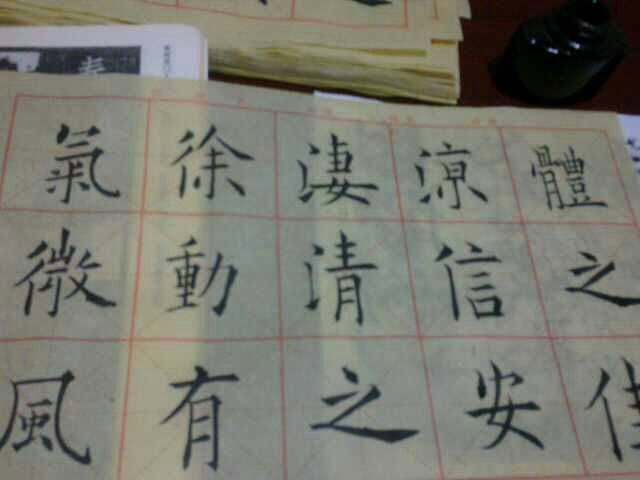 氣微風
徐動有
淒清之
涼信安
體之佳